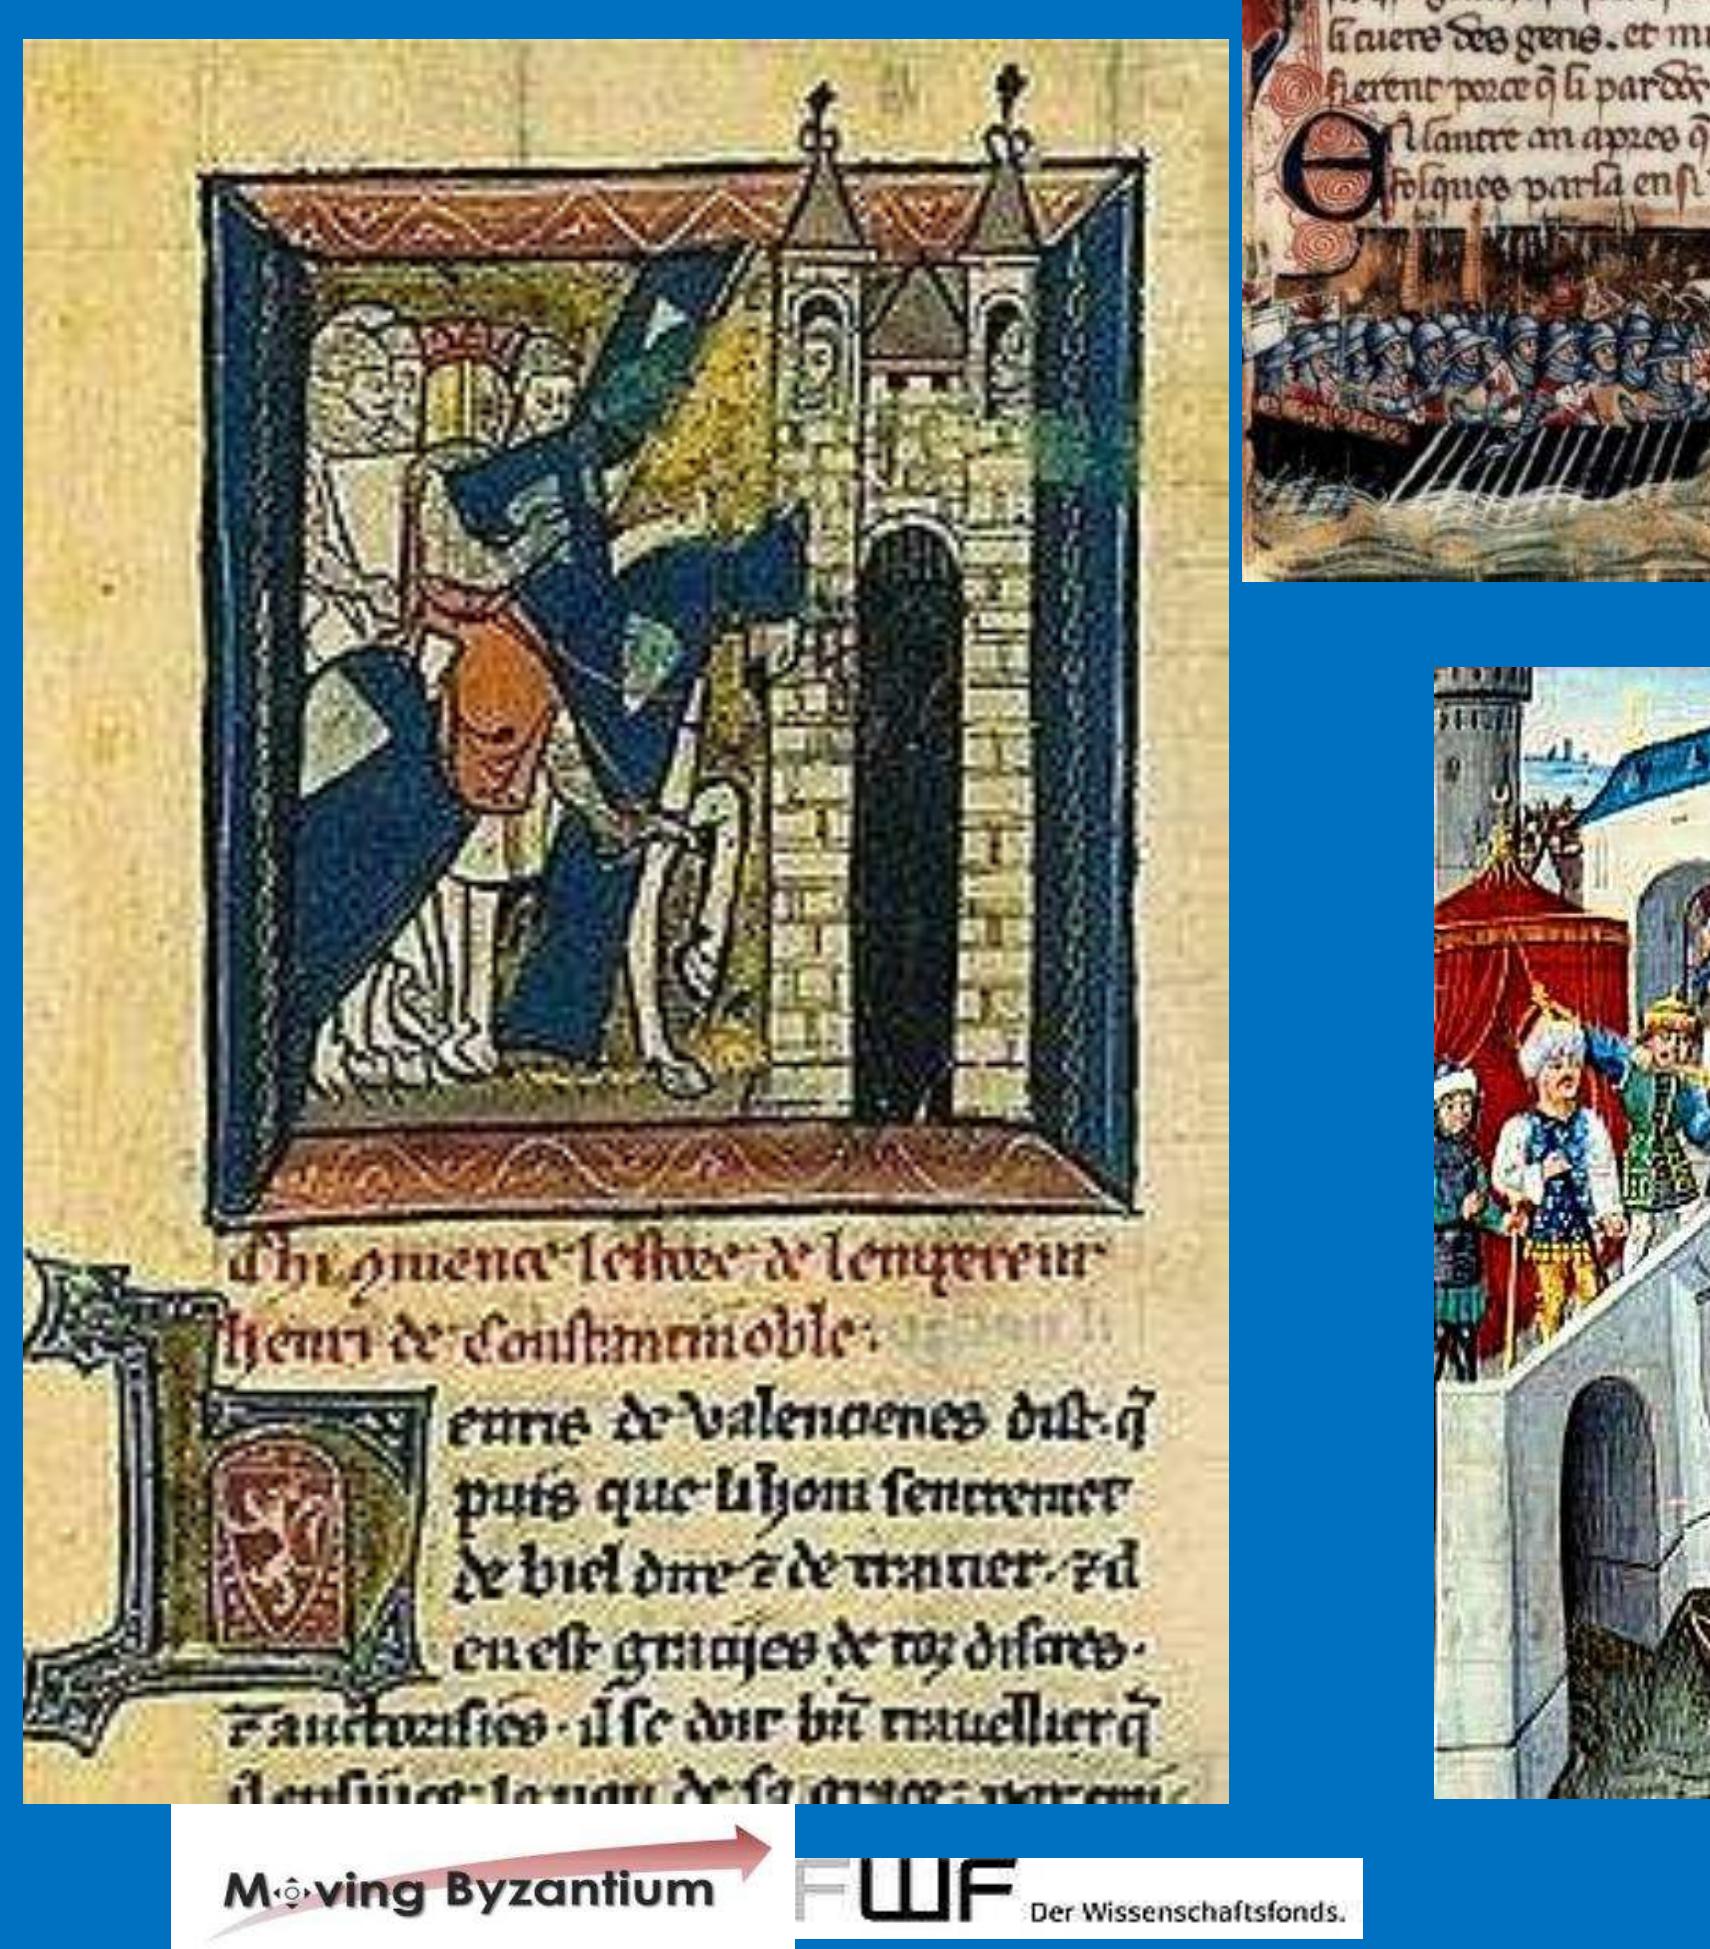 li cuers des gens. et mu
sierent porce q̃ li pardõ
En lautre an apres q̃
folques parla ensi
Chi gmence lestore de lempereur
henri de Constantinoble:
henris de valencienes dist. q̃
puis que li hom sentremet
de biel dire ⁊ de traitier. ⁊ il
en est graciies de toz discres.
⁊ auctorisies. il se doit bñ trauellier q̃
Moving Byzantium
FWF Der Wissenschaftsfonds.